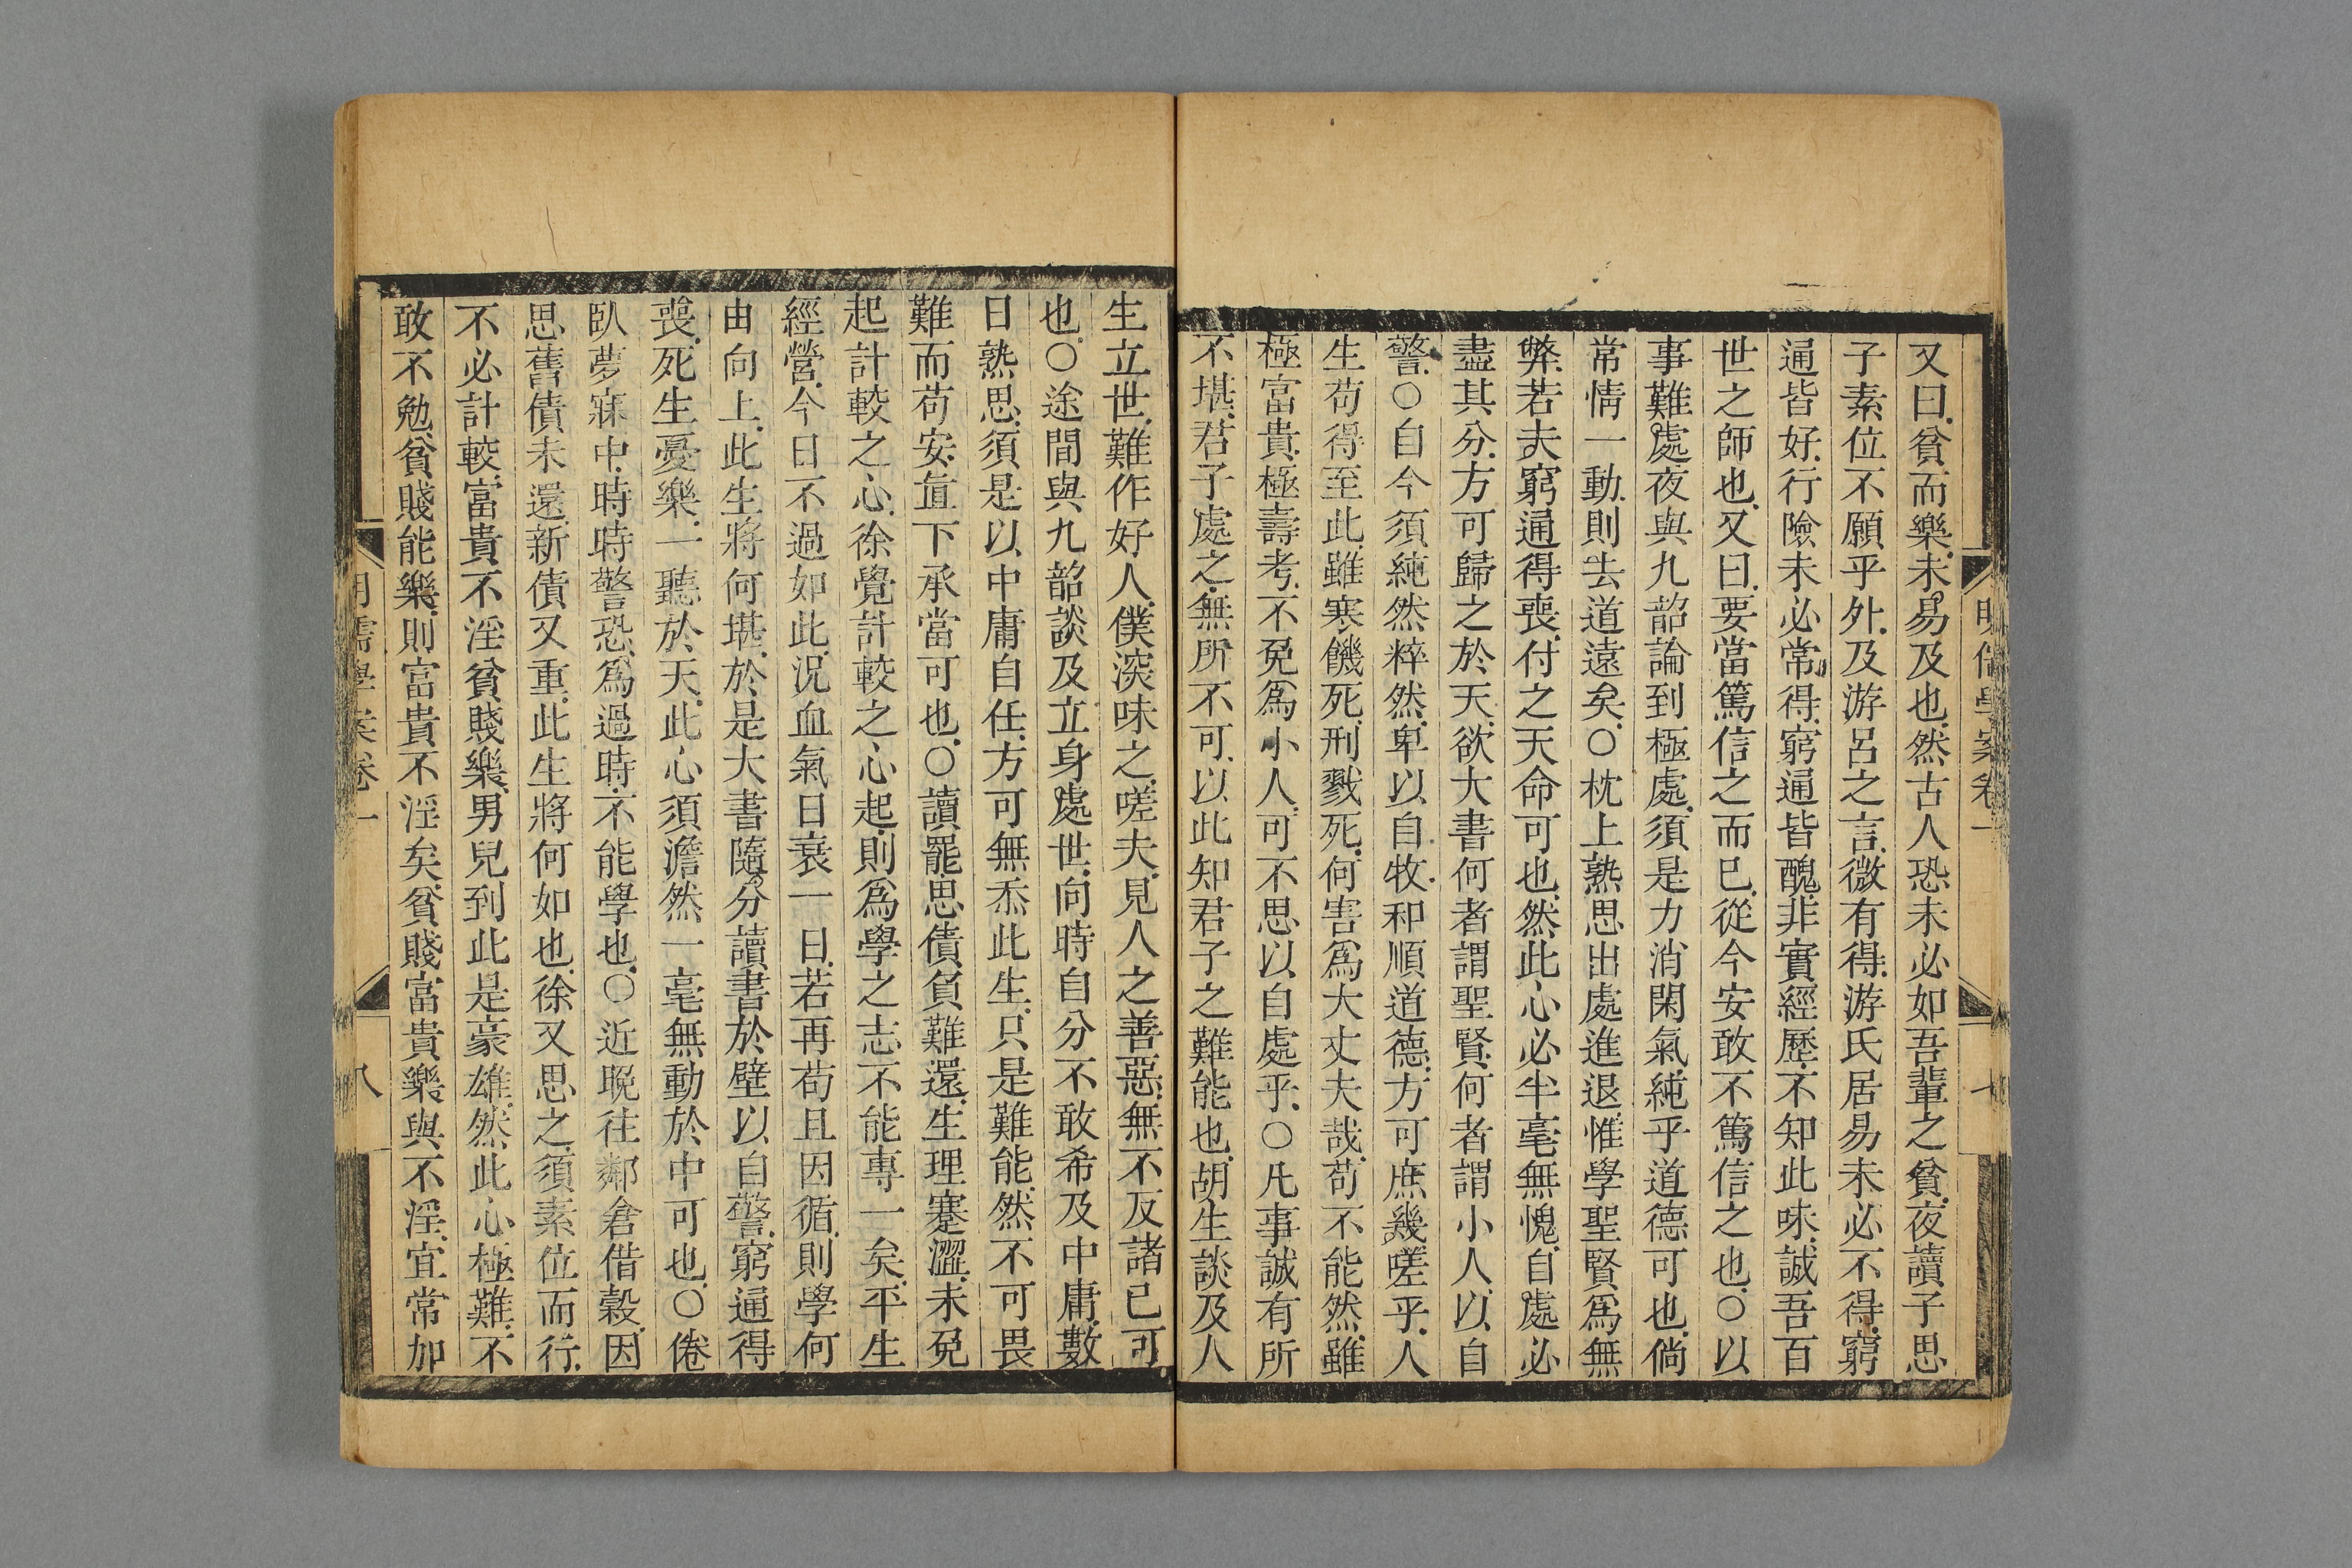 又曰貧而樂未易及也然古人恐未必如吾輩之貧夜讀子思
子素位不願乎外及游呂之言微有得游氏居易未必不得窮
通皆好行險未必常得窮通皆醜非實經歷不知此味誠吾百
世之師也又曰要當篤信之而已從今安敢不篤信之也○以
事難處夜與九韶論到極處須是力消閑氣純乎道德可也倘
常情一動則去道遠矣○枕上熟思出處進退惟學聖賢爲無
弊若夫窮通得喪付之天命可也然此心必半毫無愧自處必
盡其分方可歸之於天欲大書何者謂聖賢何者謂小人以自
警○自今須純然粹然卑以自牧和順道德方可庶幾嗟乎人
生苟得至此雖寒饑死刑戮死何害爲大丈夫哉苟不能然雖
極富貴極壽考不免爲小人可不思以自處乎○凡事誠有所
不堪君子處之無所不可以此知君子之難能也胡生談及人
明儒學案卷一
生立世難作好人僕深味之嗟夫見人之善惡無不反諸已可
也○途間與九韶談及立身處世向時自分不敢希及中庸數
日熟思須是以中庸自任方可無忝此生只是難能然不可畏
難而苟安直下承當可也○讀罷思債負難還生理蹇澀未免
起計較之心徐覺計較之心起則爲學之志不能專一矣平生
經營今日不過如此況血氣日衰一日若再苟且因循則學何
由向上此生將何堪於是大書隨分讀書於壁以自警窮通得
喪死生憂樂一聽於天此心須澹然一毫無動於中可也○倦
臥夢寐中時時警恐爲過時不能學也○近晚往鄰倉借穀因
思舊債未還新債又重此生將何如也徐又思之須素位而行
不必計較富貴不淫貧賤樂男兒到此是豪雄然此心極難不
敢不勉貧賤能樂則富貴不淫矣貧賤富貴樂與不淫宜常加
明儒學案卷一
八